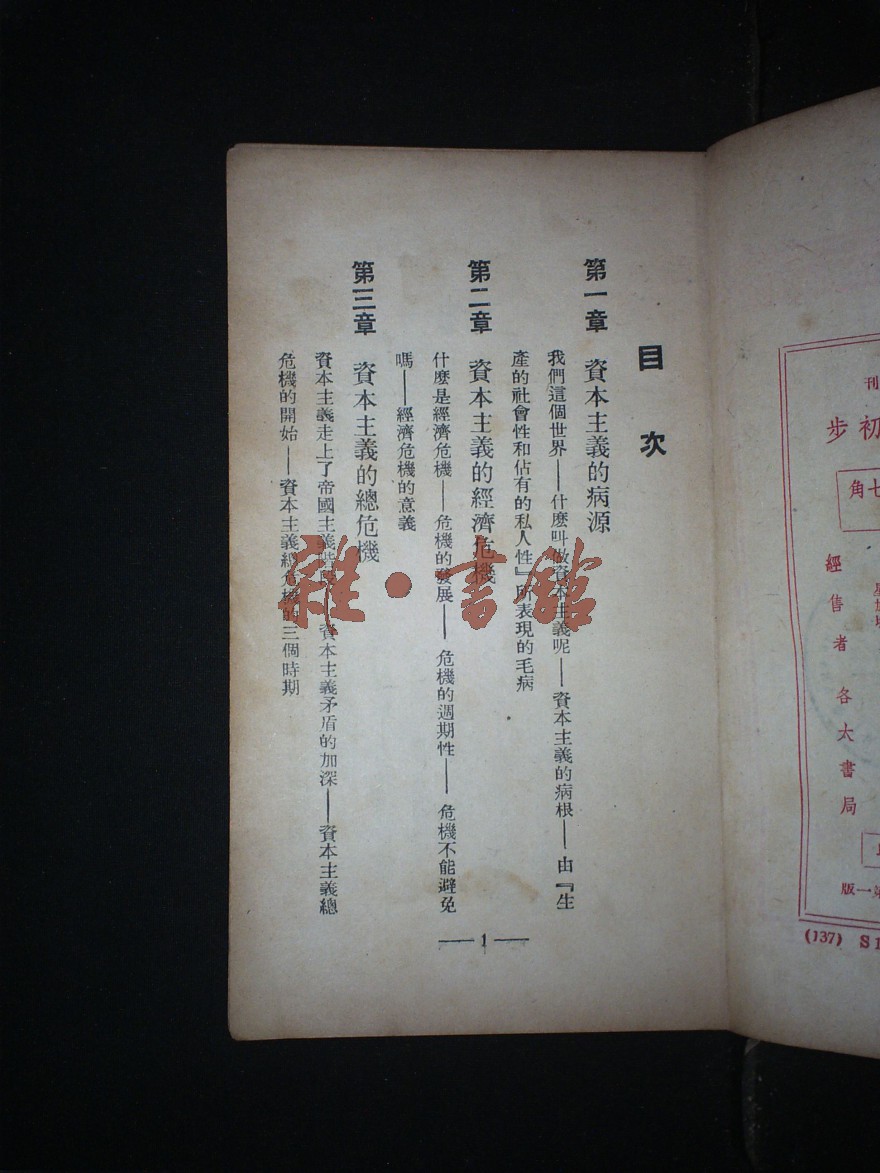 刊
初步
七角
經售者 各大書局
第一版
(137) S1
目次
第一章 資本主義的病源
我們這個世界——什麼叫做資本主義呢——資本主義的病根——由『生
產的社會性和佔有的私人性』所表現的毛病
第二章 資本主義的經濟危機
什麼是經濟危機——危機的發展——危機的週期性——危機不能避免
嗎——經濟危機的意義
第三章 資本主義的總危機
資本主義走上了帝國主義階段——資本主義矛盾的加深——資本主義總
危機的開始——資本主義總危機的三個時期
——1——
雜·書館